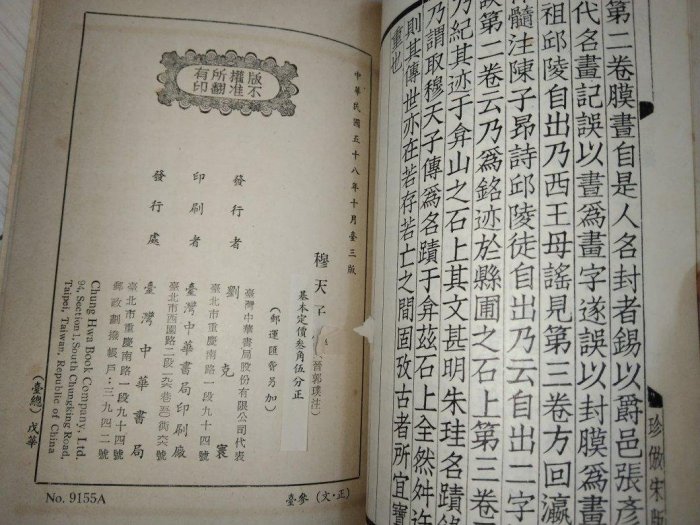 第二卷膜晝自是人名封者錫以爵邑張彥
代名畫記誤以晝爲畫字遂誤以封膜爲畫
祖邱陵自出乃西王母謠見第三卷方回瀛
髓注陳子昂詩邱陵徒自出乃云自出二字
誤第二卷云乃爲銘迹於縣圃之石上第三卷
乃紀其迹于弇山之石上其文甚明朱珪名蹟
乃謂取穆天子傳爲名蹟于弇茲石上全然舛許
則其傳世亦在若存若亡之間固攷古者所宜寶
重也
珍倣宋版
版權所有
不准翻印
中華民國五十八年十月臺三版
穆天子
晉郭璞注
基本定價叁角伍分正
(郵運匯費另加)
發行者
臺灣中華書局股份有限公司代表
劉克寰
臺北市重慶南路一段九十四號
印刷者
臺灣中華書局印刷廠
發行處
臺灣中華書局
臺北市重慶南路一段九十四號
郵政劃撥帳戶:三九四二號
Chung Hwa Book Company, Ltd.
94, Section 1, South Chungking Road,
Taipei, Taiwan, Republic of China
(臺總)戊華
No. 9155A
臺參(文·正)